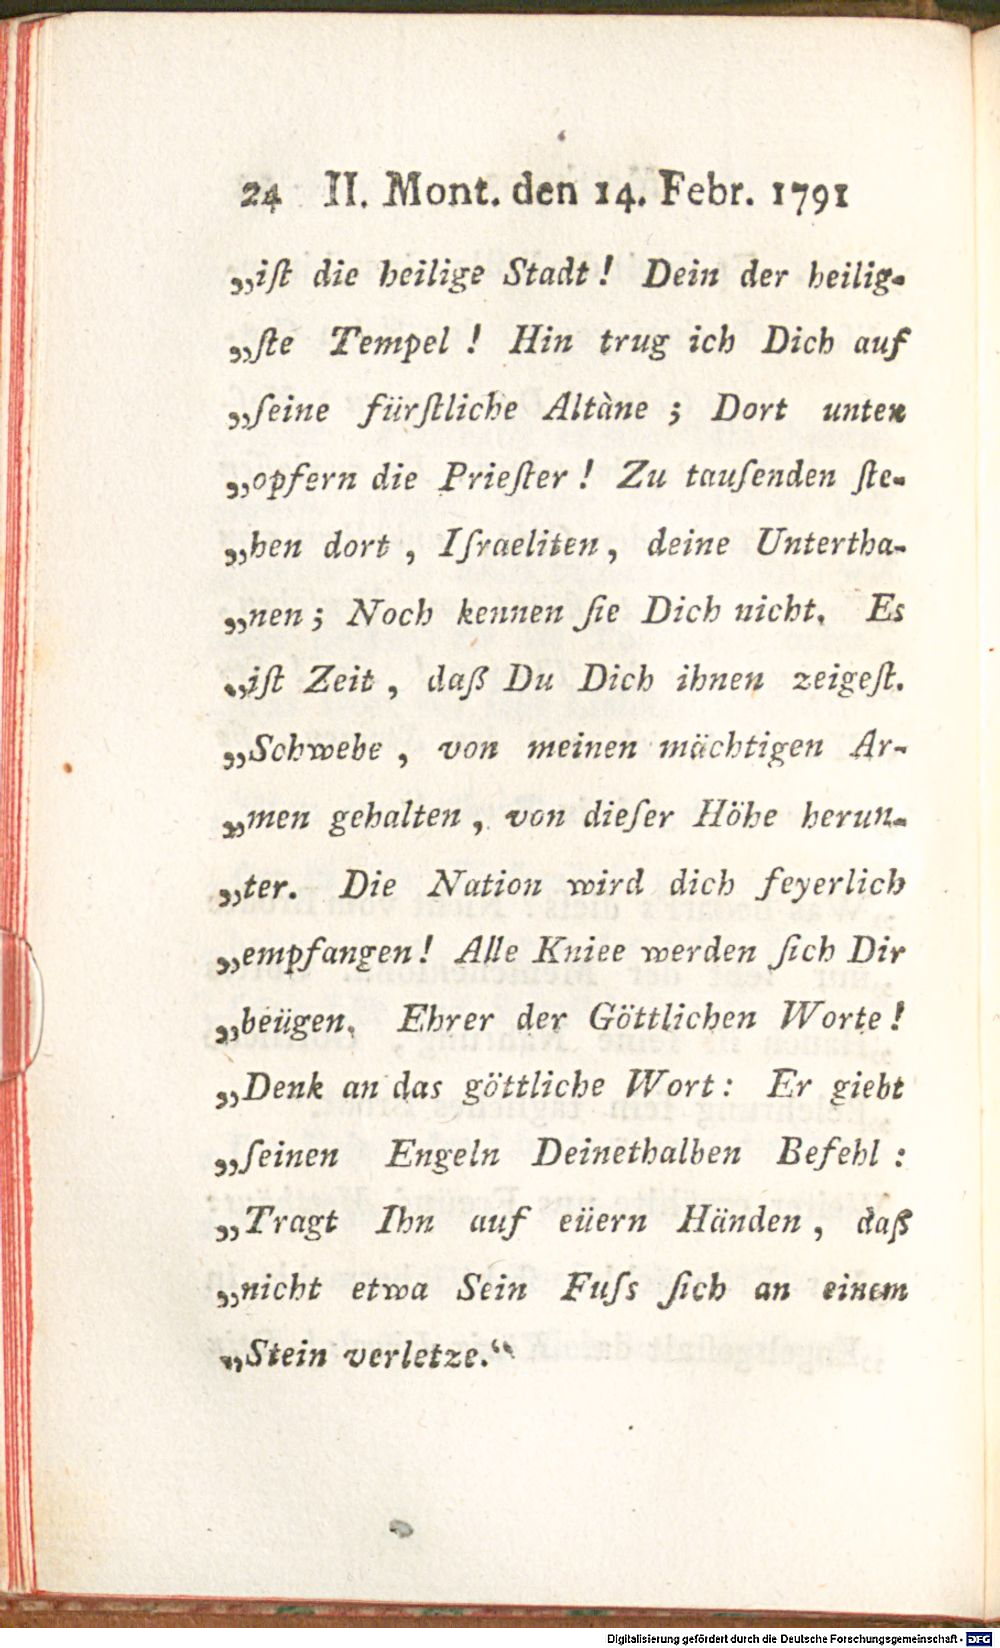 24 II. Mont. den 14. Febr. 1791
„iſt die heilige Stadt! Dein der heilig-
„ſte Tempel! Hin trug ich Dich auf
„ſeine fürſtliche Altàne; Dort unten
„opfern die Prieſter! Zu tauſenden ſte-
„hen dort, Iſraeliten, deine Untertha-
„nen; Noch kennen ſie Dich nicht. Es
„iſt Zeit, daß Du Dich ihnen zeigeſt.
„Schwebe, von meinen mächtigen Ar-
„men gehalten, von dieſer Höhe herun-
„ter. Die Nation wird dich feyerlich
„empfangen! Alle Kniee werden ſich Dir
„beügen. Ehrer der Göttlichen Worte!
„Denk an das göttliche Wort: Er giebt
„ſeinen Engeln Deinethalben Befehl:
„Tragt Ihn auf eüern Händen, daß
„nicht etwa Sein Fuſs ſich an einem
„Stein verletze.“
Digitalisierung gefördert durch die Deutsche Forschungsgemeinschaft - DFG